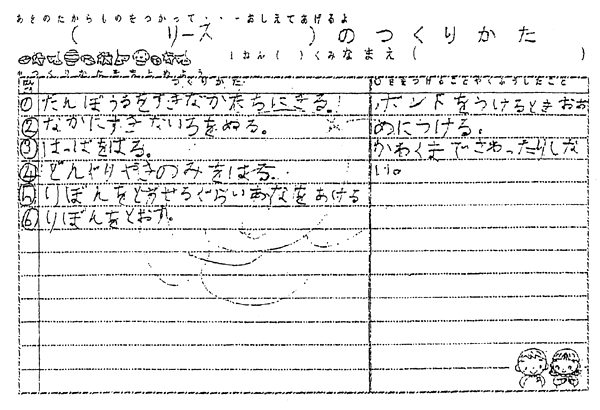 あきのたからものをつかって・・・おしえてあげるよ
(リース)のつくりかた
1ねん( )くみ なまえ( )
つくりかた
①だんぼうるをすきなかたちにきる。
②なかにすきないろをぬる。
③はっぱをはる。
④どんぐりやきのみをはる。
⑤りぼんをとおせるぐらいあなをあける
⑥りぼんをとおす。
ボンドをつけるときおお
めにつける。
かわくまでさわったりしな
い。